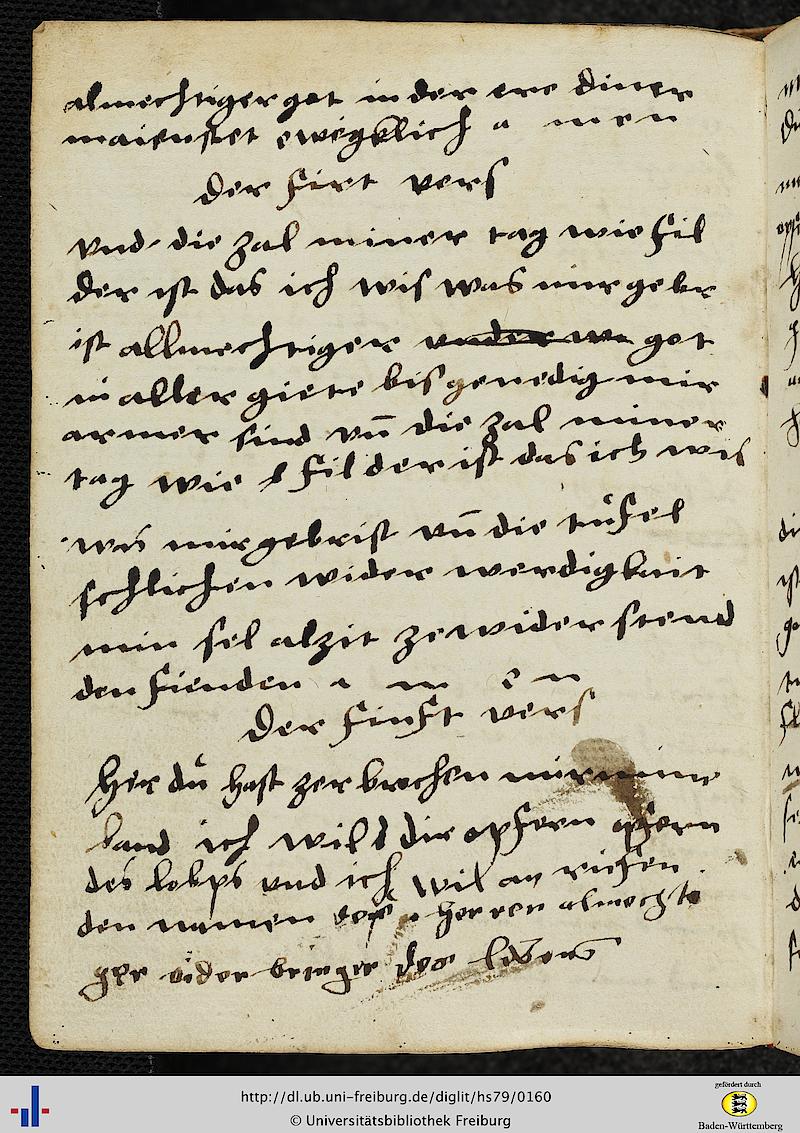 almechtiger got in der ere diner
maienstet ewigklich a men
der firt vers
vnd die zal miner tag wie fil
der ist das ich wis was mir gebr
ist allmechtiger vnder got
in aller giete bis genedig mir
armer sind vn̄ die zal miner
tag wie l fil der ist das ich wis
was mir gebrist vn̄ die tüfel
schlichen wider werdigkait
min sel alzit ze wider stend
den fienden a m e n
der finft vers
Her du hast zerbrochen mir mine
band ich wil dir opfern opfern
des lobps vnd ich wil an riefen
den namen herren almechte
ger wider bringer des lebens
http://dl.ub.uni-freiburg.de/diglit/hs79/0160
© Universitätsbibliothek Freiburg
gefördert durch
Baden-Württemberg